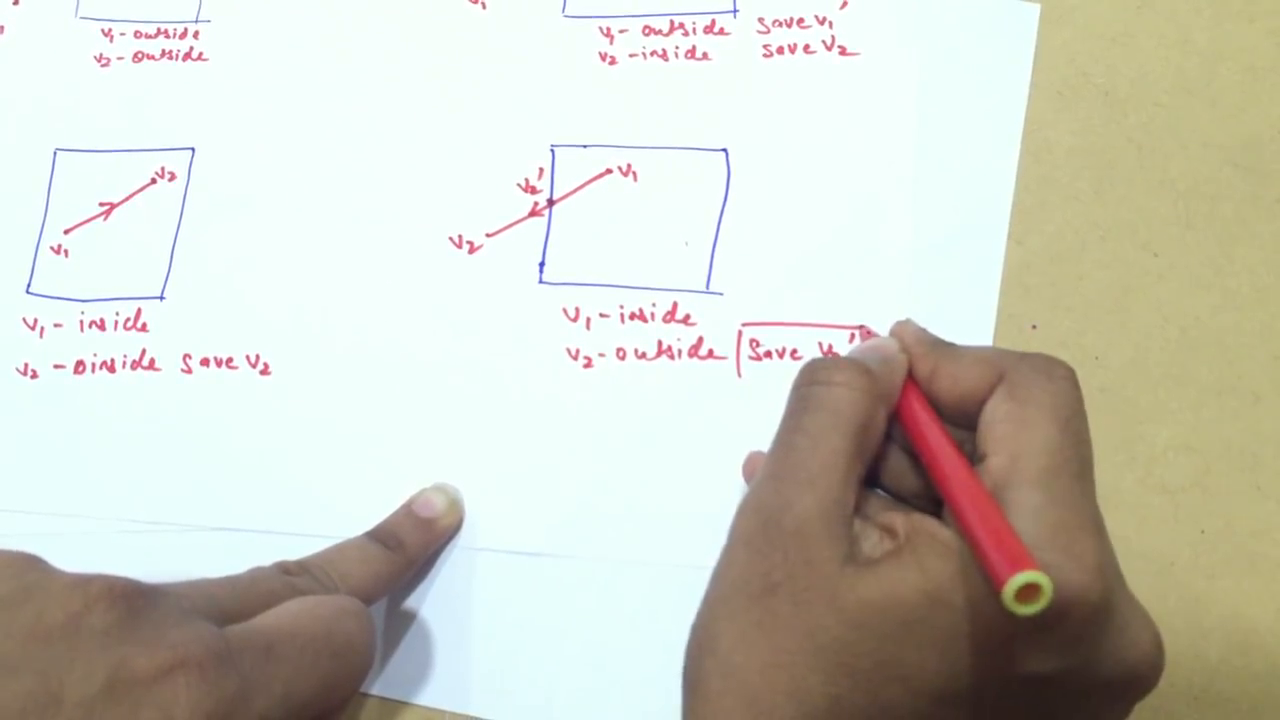 v₁ - outside
v₂ - outside
v₁
v₁ - outside save v₁'
v₂ - inside save v₂
v₂
v₁
v₁ - inside
v₂ - oinside save v₂
v₂'
v₁
v₂
v₁ - inside
v₂ - outside save v₂'